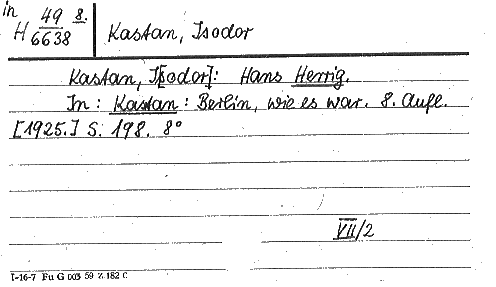 in
H 49 8.
6638
Kastan, Isodor
Kastan, I[sodor]: Hans Herrig.
In: Kastan: Berlin, wie es war. 8. Aufl.
[1925.] S. 198. 8°
VII/2
I-16-7 Fu G 003 59 Z. 182 C